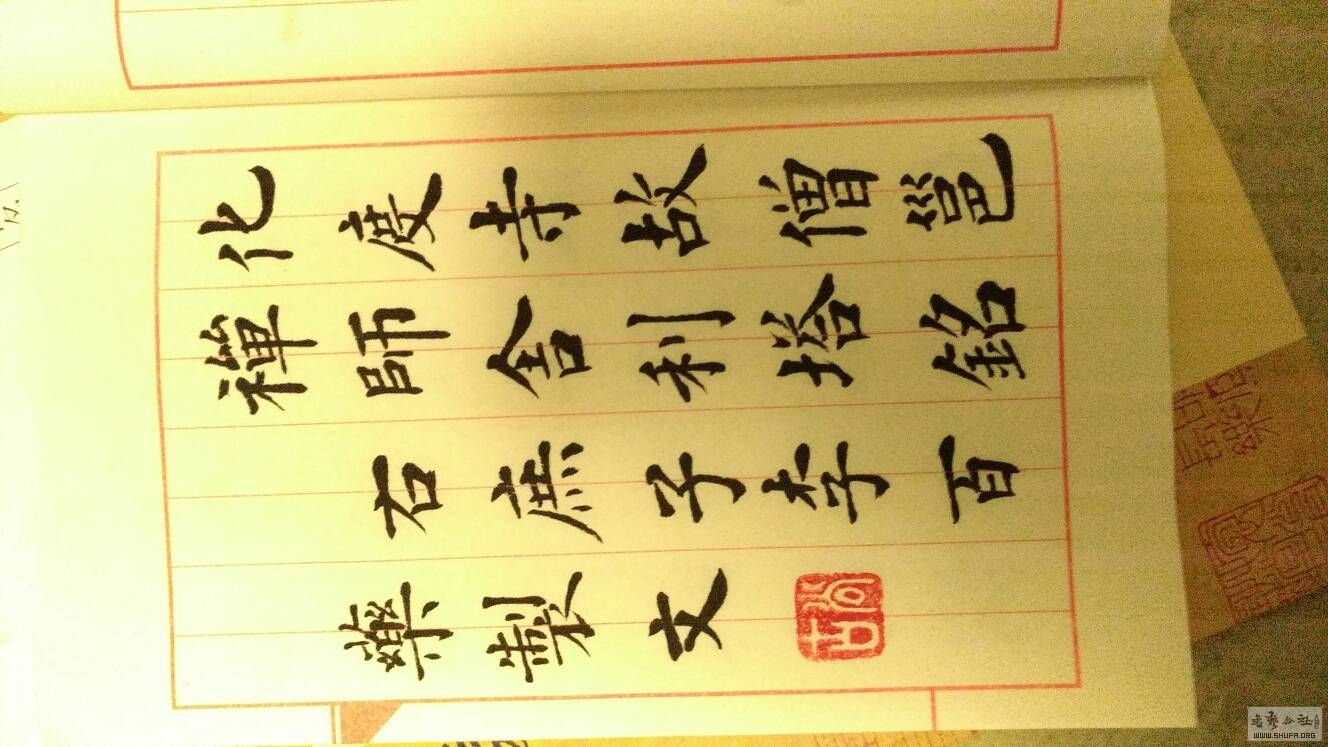 化度寺故僧邕
禪師舍利塔銘
右庶子李百
藥製文
尚古
書藝公社
WWW.SHUFA.ORG